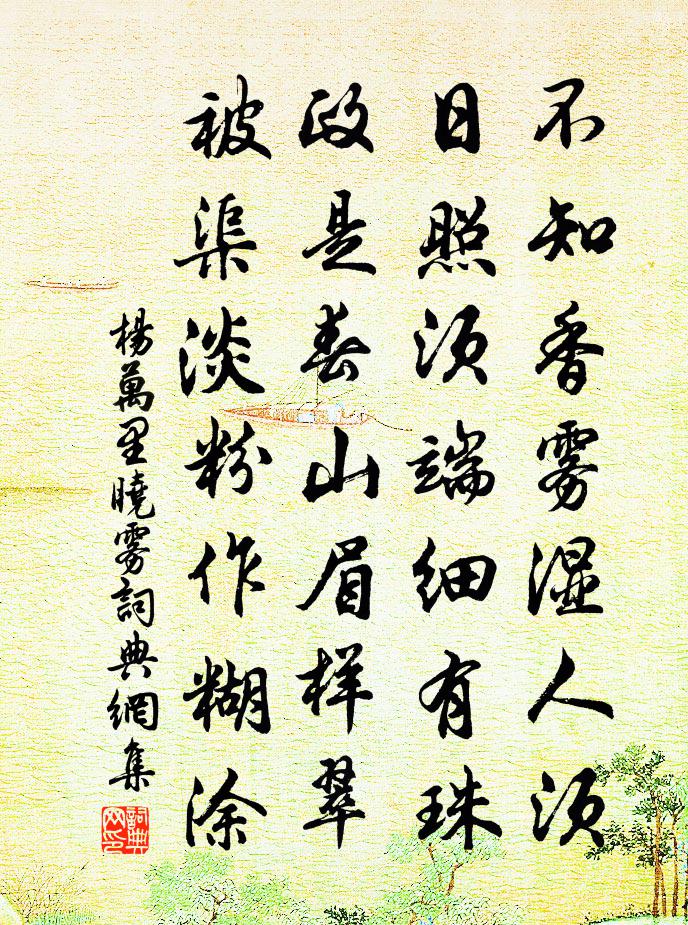 不知香雾湿人须
日照须端细有珠
政是春山眉样翠
被渠淡粉作糊涂
楊萬里曉雾詞典網集
詞典网印